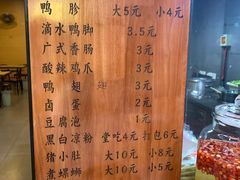 鸭胗 大5元 小4元
滴水鸭脚 3.5元
广式香肠 3元
酸辣鸡爪 3元
鸭翅 翅 3元
卤蛋 2元
豆腐泡 1元
黑白凉粉 堂吃4元 打包6元
猪小肚 大10元 小8元
煮螺蛳 大10元 小5元